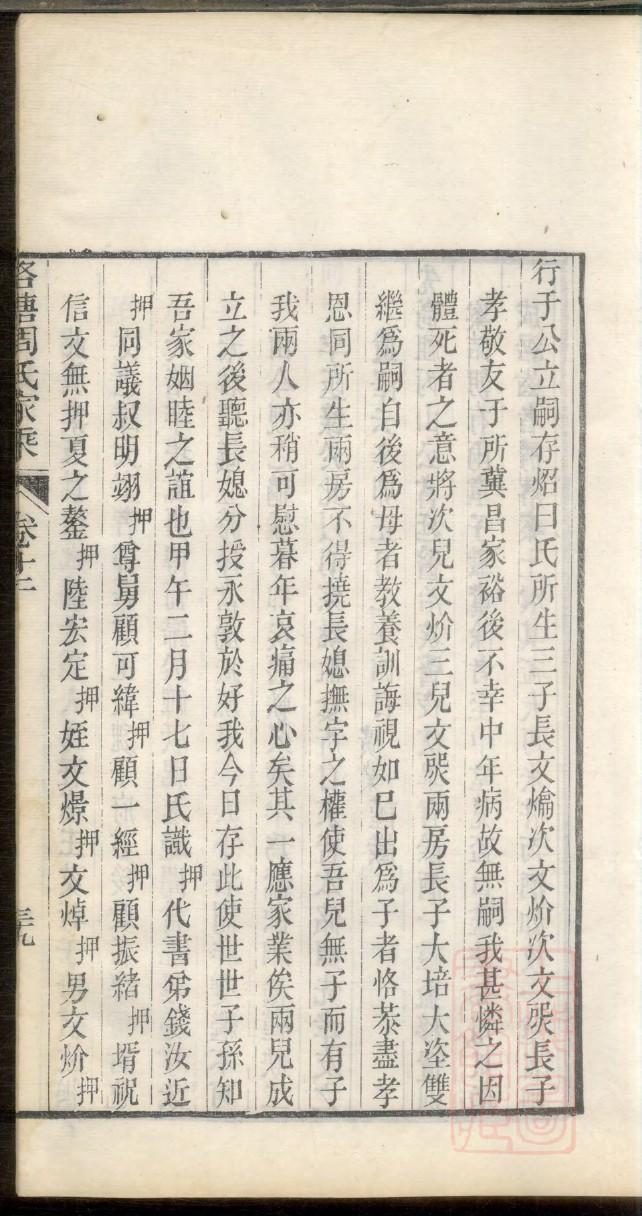 行于公立嗣存炤曰氏所生三子長文煽次文炌次文煛長子
孝敬友于所冀昌家裕後不幸中年病故無嗣我甚憐之因
體死者之意將次兒文炌三兒文煛兩房長子大培大坖雙
繼爲嗣自後爲母者教養訓誨視如己出爲子者恪恭盡孝
恩同所生兩房不得撓長媳撫字之權使吾兒無子而有子
我兩人亦稍可慰暮年哀痛之心矣其一應家業俟兩兒成
立之後聽長媳分授永敦於好我今日存此使世世子孫知
吾家姻睦之誼也甲午二月十七日氏識押代書弟錢汝近
押同議叔明翊押尊舅顧可緯押顧一經押顧振緒押壻祝
信文無押夏之鏊押陸宏定押姪文燝押文焯押男文炌押
洛塘周氏家乘 卷十二 三九